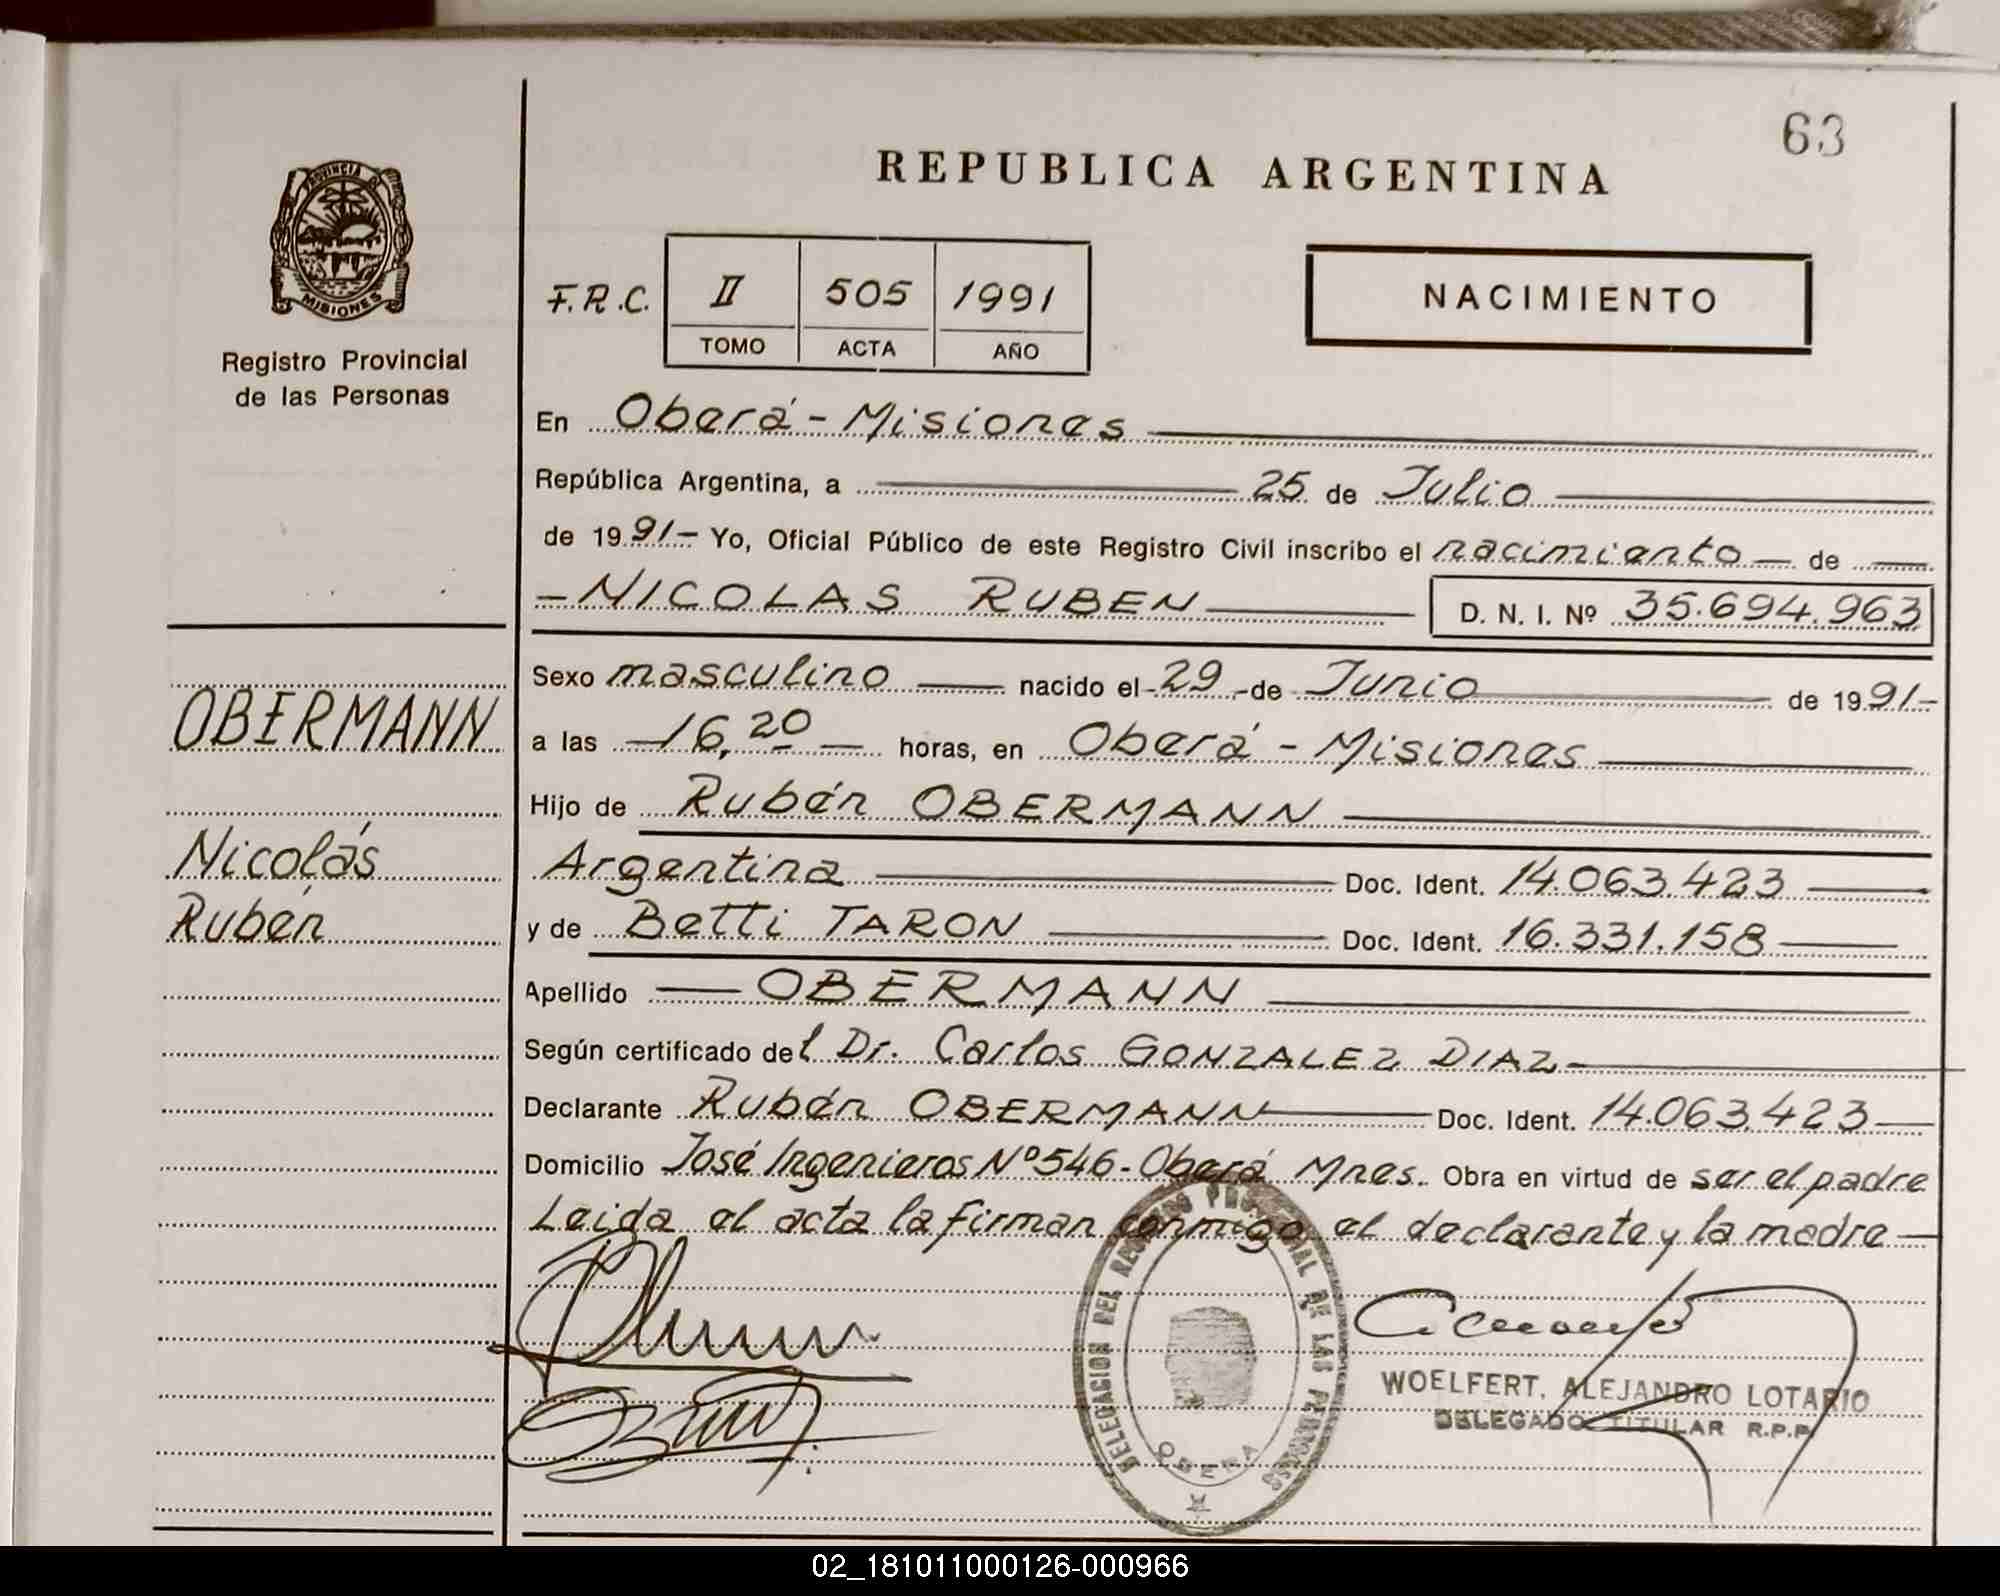 63
REPUBLICA ARGENTINA
PROVINCIA DE
MISIONES
Registro Provincial
de las Personas
F.R.C.
II 505 1991
TOMO ACTA AÑO
NACIMIENTO
En Oberá - Misiones
República Argentina, a 25 de Julio
de 1991- Yo, Oficial Público de este Registro Civil inscribo el nacimiento — de —
- NICOLAS RUBEN — D. N. I. Nº 35.694.963
OBERMANN
Nicolás
Rubén
Sexo masculino — nacido el - 29 - de Junio de 1991-
a las — 16,20 — horas, en Oberá - Misiones
Hijo de Rubén OBERMANN
Argentina Doc. Ident. 14.063.423
y de Betti TARON Doc. Ident. 16.331.158
Apellido — OBERMANN
Según certificado del Dr. Carlos GONZALEZ DIAZ
Declarante Rubén OBERMANN Doc. Ident. 14.063.423
Domicilio José Ingenieros Nº 546 - Oberá Mnes. Obra en virtud de ser el padre
Leida el acta la firman conmigo el declarante y la madre
DELEGACION DEL REGISTRO PROVINCIAL DE LAS PERSONAS
OBERA
WOELFERT, ALEJANDRO LOTARIO
DELEGADO TITULAR R.P.P.
02_181011000126-000966